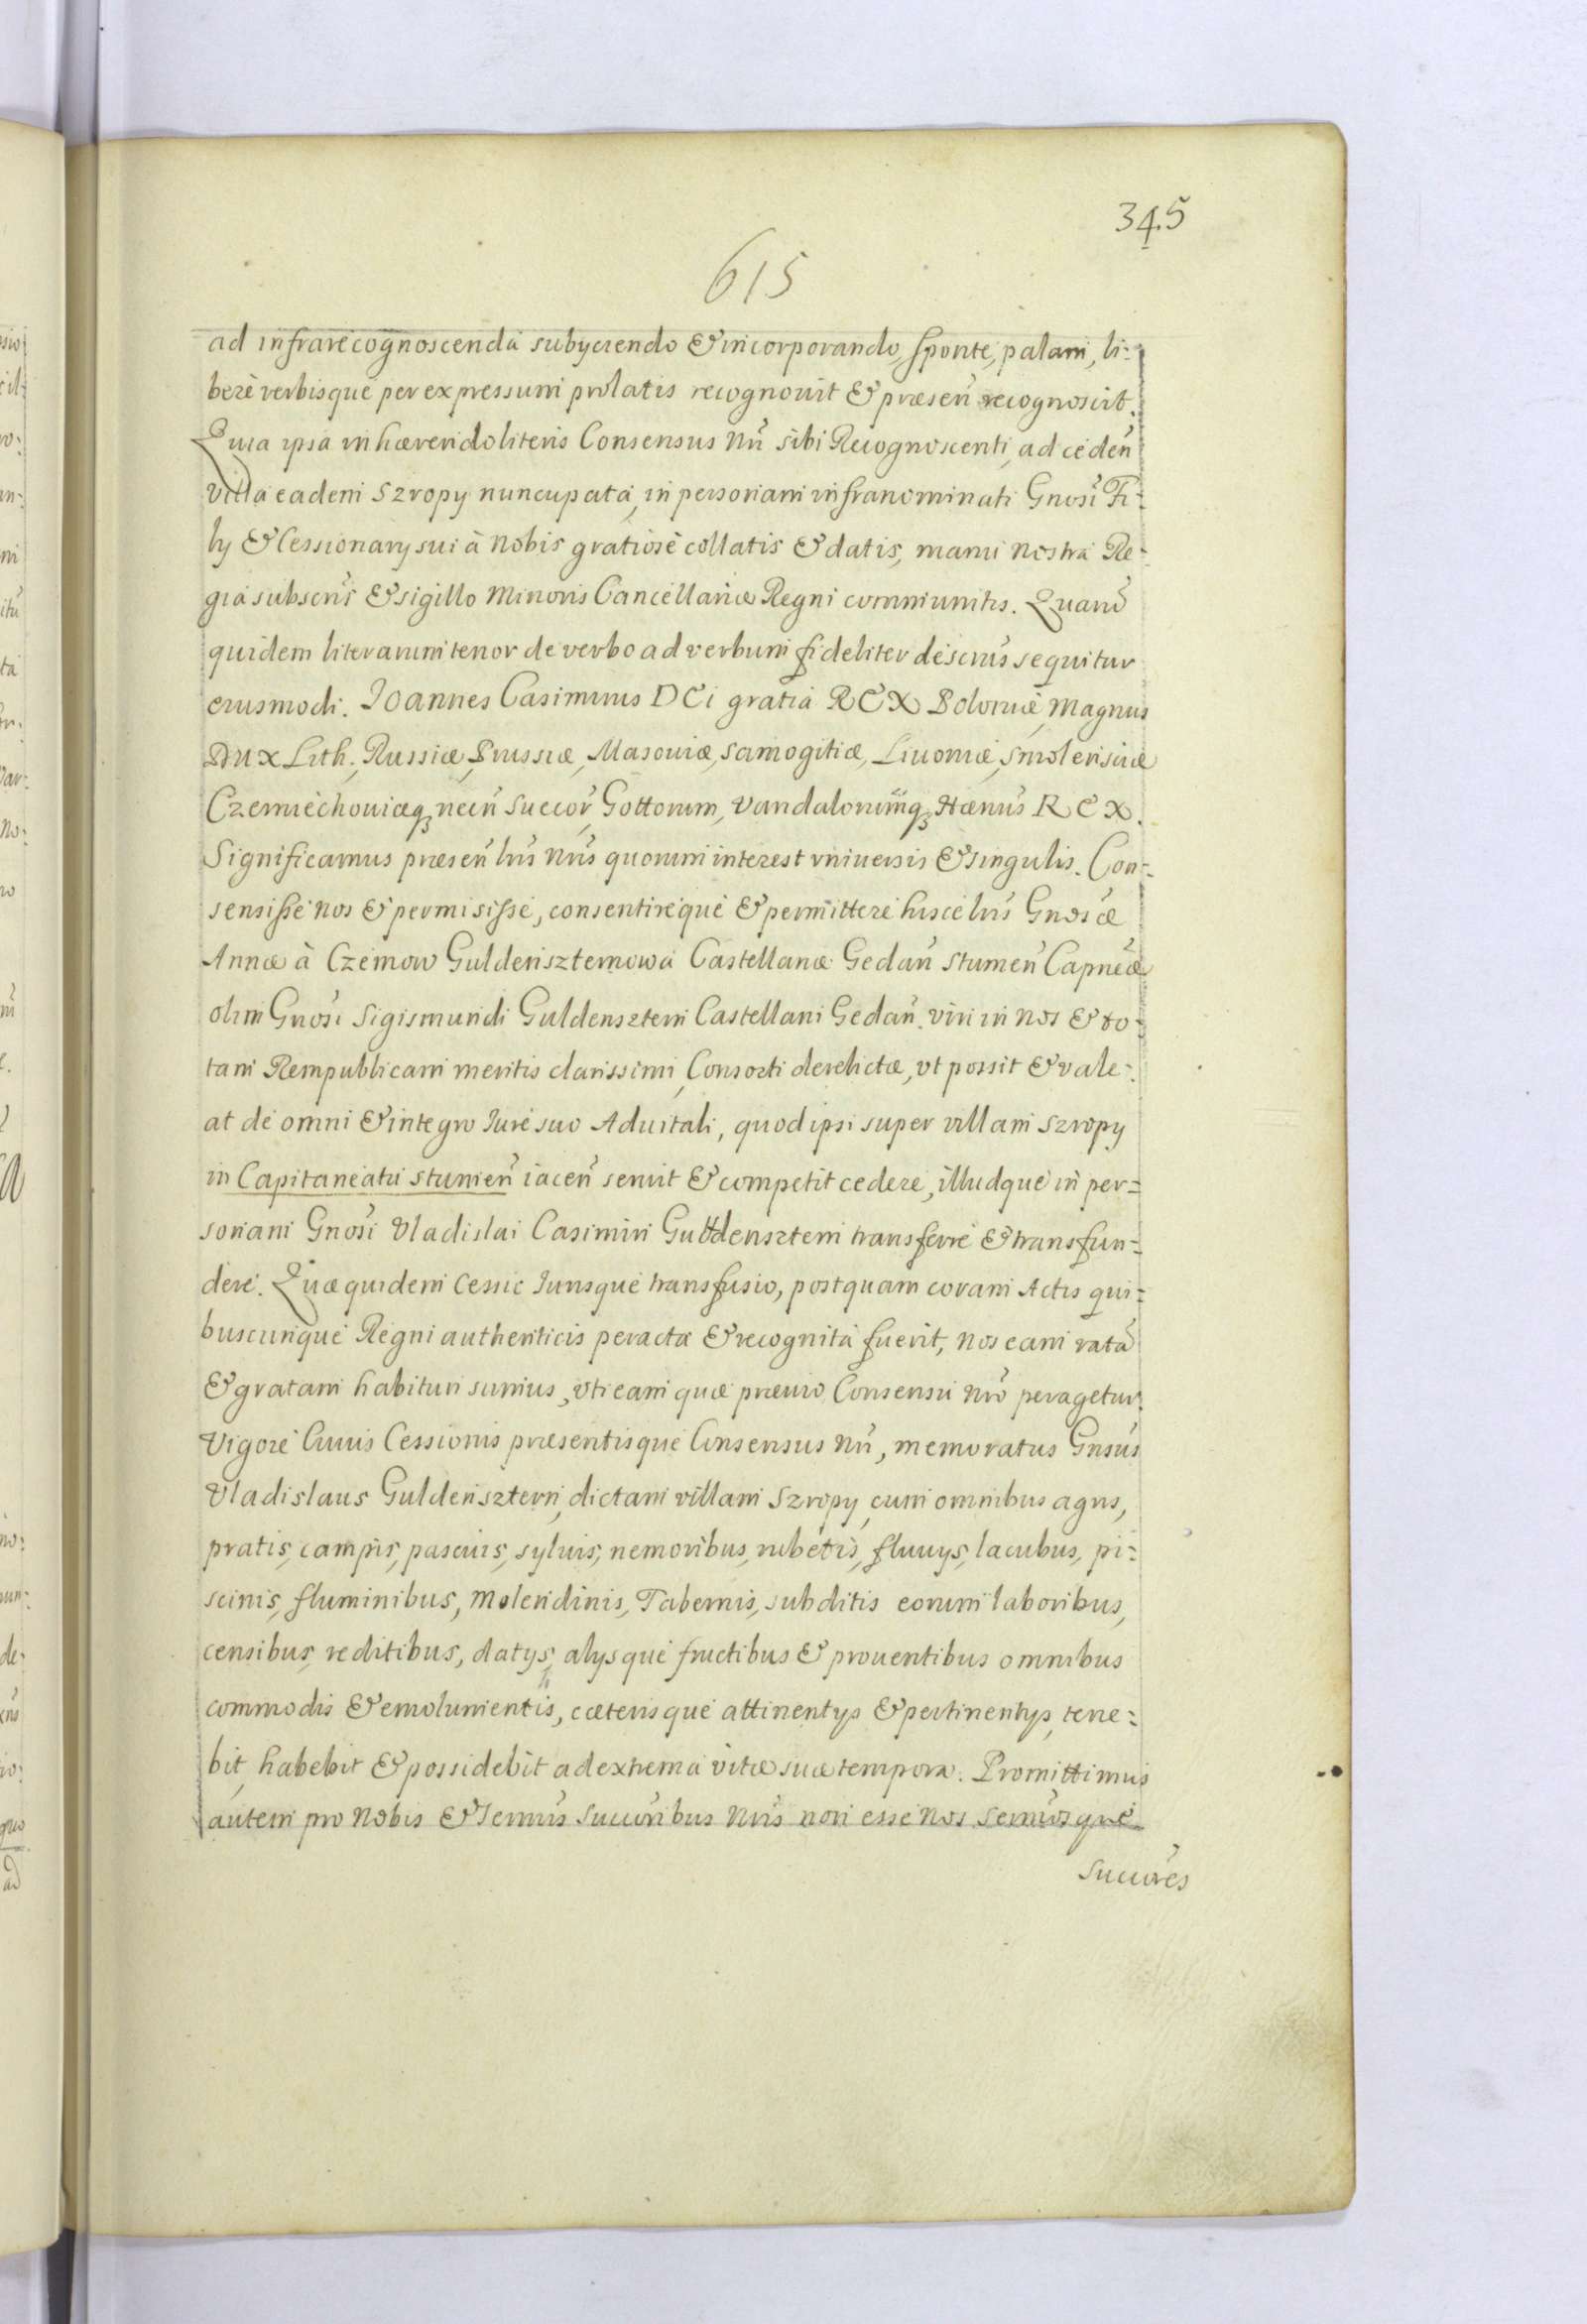 345
615
ad infrarecognoscenda subyciendo & incorporando, sponte, palam, li=
berè verbisque per expressum prolatis recognouit & præseñ recognoscit.
Quia ipsa inhærendo literis Consensus nrĩ sibi Recognoscenti, ad cedeñ
villa eadem Szropy nuncupata, in personam infranominati Gnosĩ Fi=
ly & Cessionary sui à Nobis gratiosè collatis & datis, manu nostra Re=
gia subscrĩs & sigillo Minoris Cancellariæ Regni communitis. Quarũ
quidem literarum tenor de verbo ad verbum fideliter descrĩus sequitur
eiusmodi. Joannes Casimirus DEi gratia REX Poloniæ, Magnus
Dux Lith., Russiæ, Prussiæ, Masouiæ, Samogitiæ, Liuoniæ, Smolensciæ
Czerniechouiæq3, necñ Suecoř, Gottorum, Vandalorumq3 Hærius REX.
Significamus præseñ lrĩs nrĩs quorum interest vniuersis & singulis. Con=
sensisse nos & permisisse, consentireque & permittere hisce lrĩs Gnosæ
Annæ à Czemow Guldenszternowa Castellanæ Gedañ Stumeñ Capneæ
olim Gnosĩ Sigismundi Guldensztern Castellani Gedañ. viri in nos & to=
tam Rempublicam meritis clarissimi, Consorti derelictæ, vt possit & vale=
at de omni & integro Jure suo Aduitali, quod ipsi super villam Szropy
in Capitaneatu Stumeñ iaceñ seruit & competit cedere, illudque in per=
sonam Gnosĩ Vladislai Casimiri Guldensztern transferre & transfun=
dere. Quæ quidem Cessio Jurisque transfusio, postquam coram Actis qui=
buscunque Regni authenticis peracta & recognita fuerit, nos eam ratã
& gratam habituri sumus, vti eam quæ præuio Consensu nrõ peragetur.
Vigore Cuius Cessionis præsentisque Consensus nrĩ, memoratus Gnsũs
Vladislaus Guldensztern, dictam villam Szropy, cum omnibus agris,
pratis, campis, pascuis, syluis, nemoribus, rubetis, fluuys, lacubus, pi=
scinis, fluminibus, Molendinis, Tabernis, subditis eorum laboribus,
censibus, reditibus, datys, alysque fructibus & prouentibus omnibus
commodis & emolumentis, cæterisque attinentys & pertinentys, tene=
bit, habebit & possidebit ad extrema vitæ suæ tempora. Promittimus
autem pro Nobis & Sermĩs Succoribus nrĩs non esse Nos Sermosque
Succores